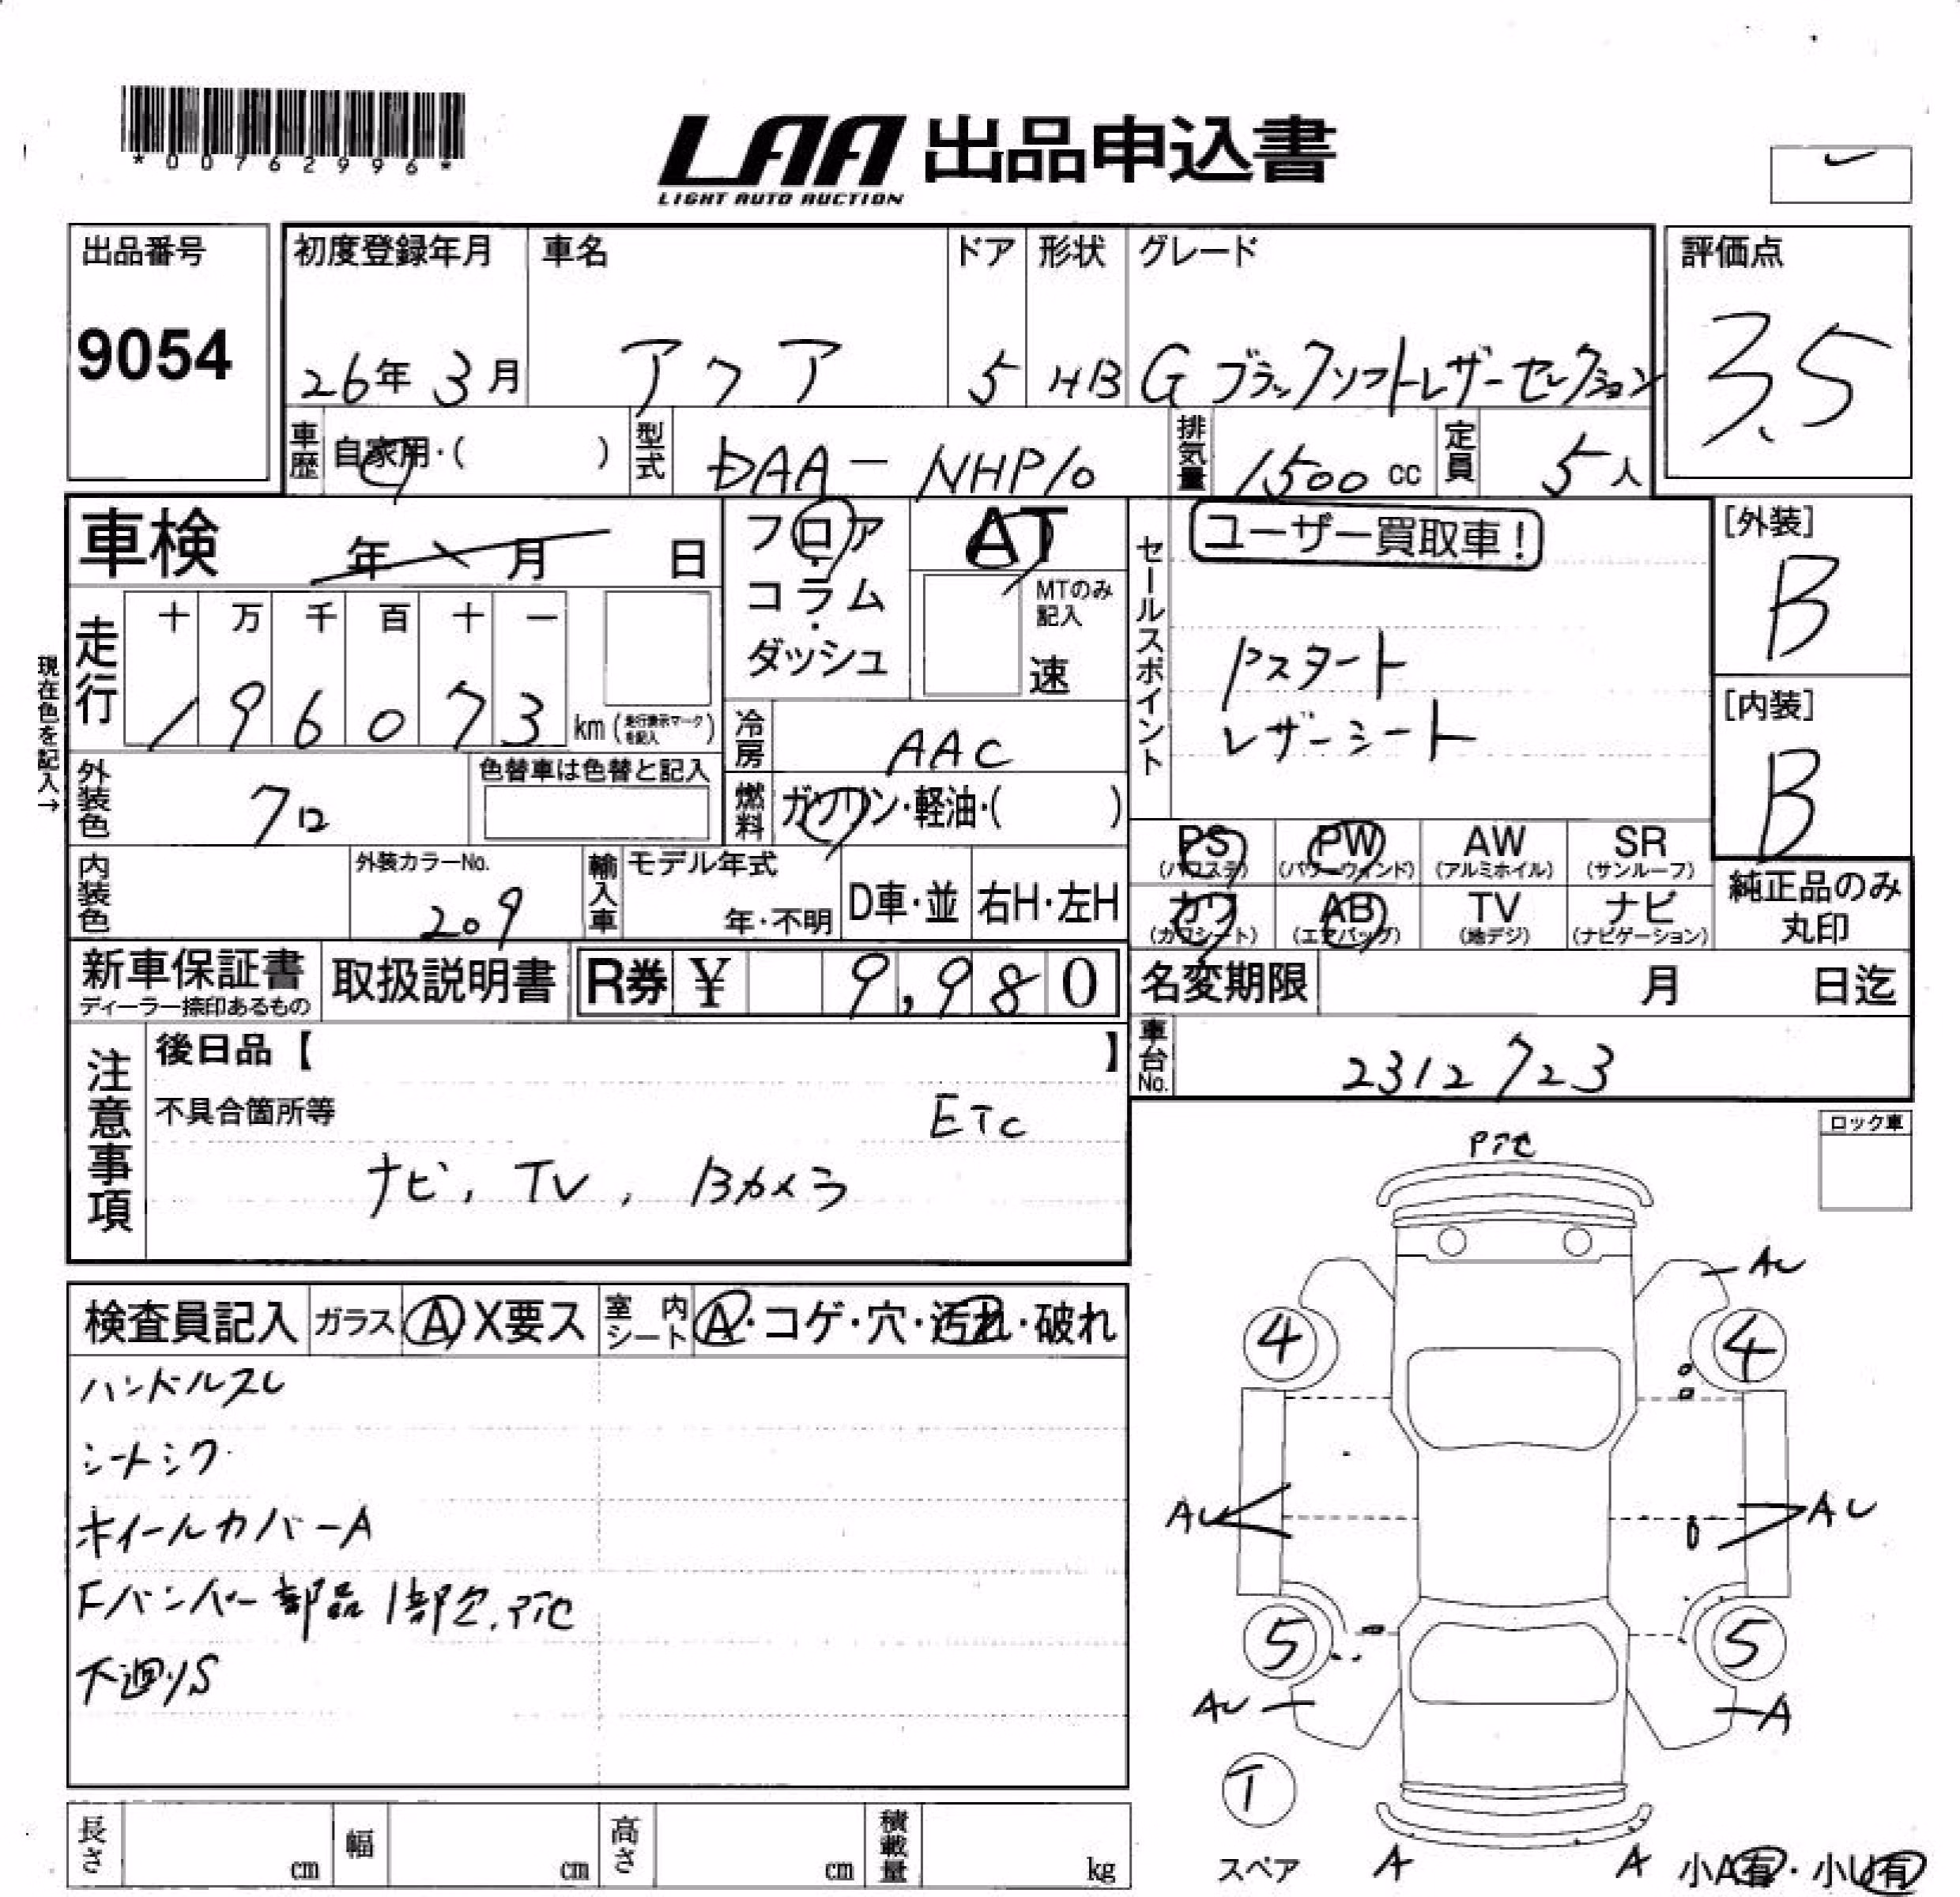 *00762996*
LAA 出品申込書
LIGHT AUTO AUCTION
出品番号
9054
初度登録年月 車名 ドア 形状 グレード
26年 3月 アクア 5 HB G ブラックソフトレザーセレクション
評価点
3.5
車歴 自家用・( ) 型式 DAA-NHP10 排気量 1500cc 定員 5人
車検 年 月 日
フロア・コラム・ダッシュ
AT
MTのみ記入
速
セールスポイント
ユーザー買取車!
Pスタート
レザーシート
[外装]
B
[内装]
B
現在色を記入→
走行 十 万 千 百 十 一
196073 km (走行表示マークを記入)
冷房 AAC
外装色 クロ
色替車は色替と記入
燃料 ガソリン・軽油・( )
PS (パワステ) PW (パワーウィンド) AW (アルミホイル) SR (サンルーフ)
カワ (カワシート) AB (エアバッグ) TV (地デジ) ナビ (ナビゲーション)
純正品のみ丸印
内装色
外装カラーNo.
209
輸入車 モデル年式
年・不明 D車・並 右H・左H
新車保証書
ディーラー捺印あるもの
取扱説明書
R券 ¥ 9,980
名変期限 月 日迄
車台No. 2312723
注意事項
後日品【 】
不具合箇所等 ETC
ナビ, TV, Bカメラ
ロック車
検査員記入 ガラス A X要ス 室内シート A・コゲ・穴・汚れ・破れ
ハンドルスレ
シートシワ
ホイールカバーA
Fバンパー部品1部欠,
下廻りS
AU
4 4
AU AU
5 5
AU A
T
スペア
A A
小A有・小U有
長さ cm 幅 cm 高さ cm 積載量 kg